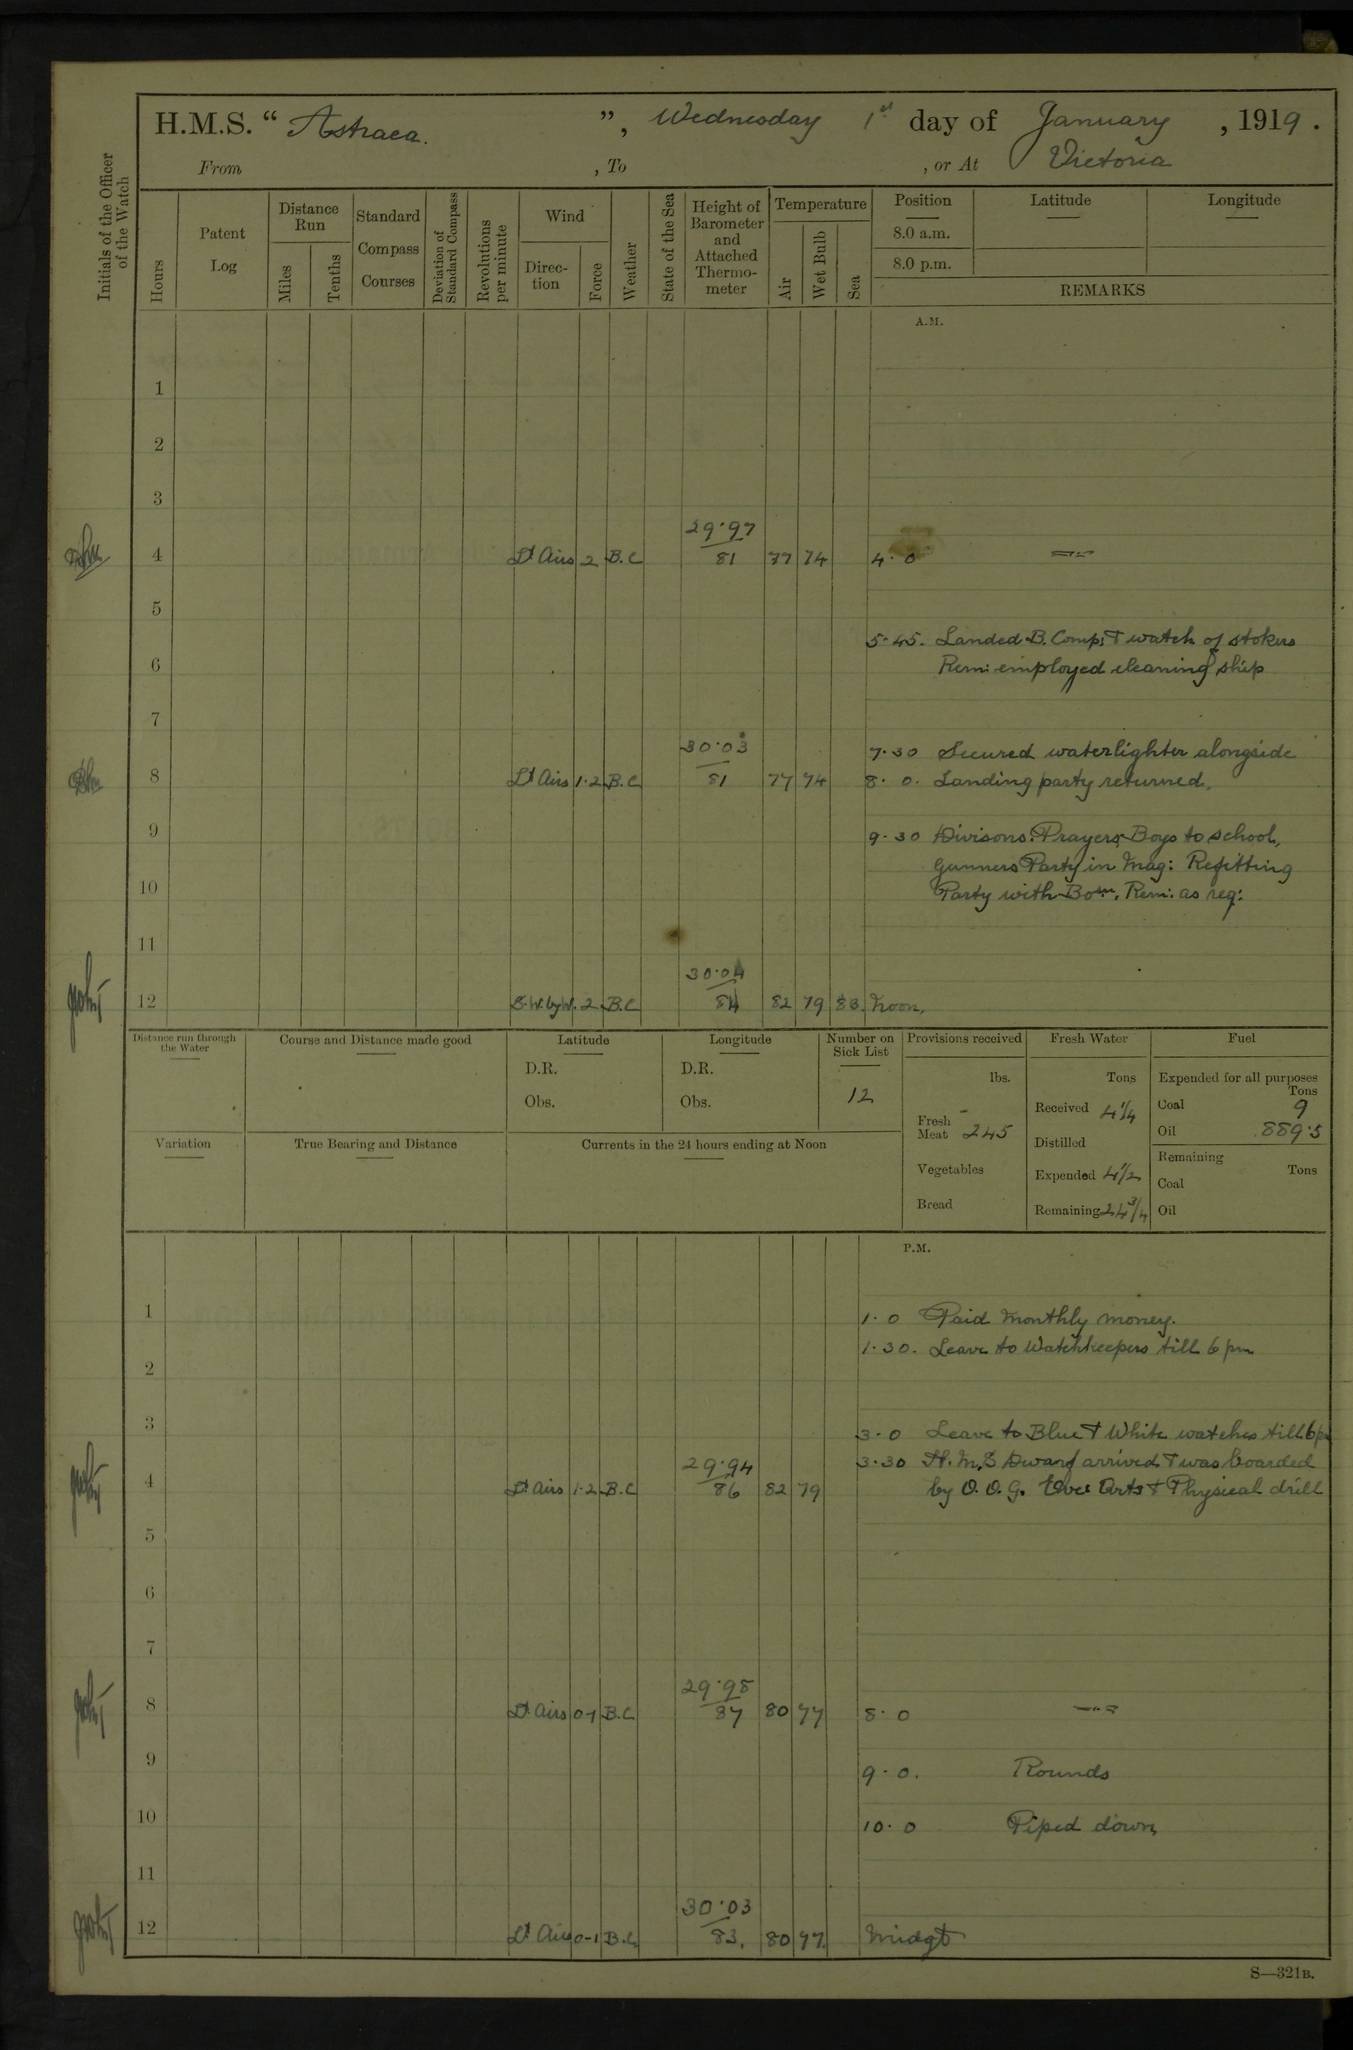 H.M.S. “ Astraea. ”, Wednesday 1st day of January, 1919.
From , To , or At Victoria
Initials of the Officer of the Watch
Hours
Patent Log
Distance Run
Miles
Tenths
Standard Compass Courses
Deviation of Standard Compass
Revolutions per minute
Wind
Direction
Force
Weather
State of the Sea
Height of Barometer and Attached Thermometer
Temperature
Air
Wet Bulb
Sea
Position Latitude Longitude
8.0 a.m.
8.0 p.m.
REMARKS
A.M.
1
2
3
29.97
4 Lt Airs 2 B.C 81 77 74 4.0 — " —
5
5.45. Landed B. Comp: & watch of stokers
6 Rem: employed cleaning ship
7
30.03 7.30 Secured waterlighter alongside
8 Lt Airs 1.2 B.C 81 77 74 8.0. Landing party returned.
9 9.30 Divisons. Prayers, Boys to school,
Gunners Party in Mag: Refitting
10 Party with Bosn. Rem: as req:
11
30.04
12 S.W.byW. 2 B.C 84 82 79 83 Noon.
Distance run through the Water
Course and Distance made good
Latitude
D.R.
Obs.
Longitude
D.R.
Obs.
Number on Sick List
12
Provisions received
lbs.
Fresh Meat 245
Vegetables
Bread
Fresh Water
Tons
Received 4 1/4
Distilled
Expended 4 1/2
Remaining 24 3/4
Fuel
Expended for all purposes
Tons
Coal 9
Oil 889.5
Remaining
Tons
Coal
Oil
Variation
True Bearing and Distance
Currents in the 24 hours ending at Noon
P.M.
1 1.0 Paid Monthly money.
1.30. Leave to Watchkeepers till 6 pm
2
3 3.0 Leave to Blue & White watches till 6 pm
29.94 3.30 H.M.S Dwarf arrived & was boarded
4 Lt Airs 1.2 B.C 86 82 79 by O.O.G. Evec Qrts & Physical drill
5
6
7
29.98
8 Lt Airs 0-1 B.C. 87 80 77 8.0 — " —
9 9.0. Rounds
10 10.0 Piped down,
11
30.03
12 Lt Airs 0-1 B.C. 83. 80 77. Midgt
S—321B.